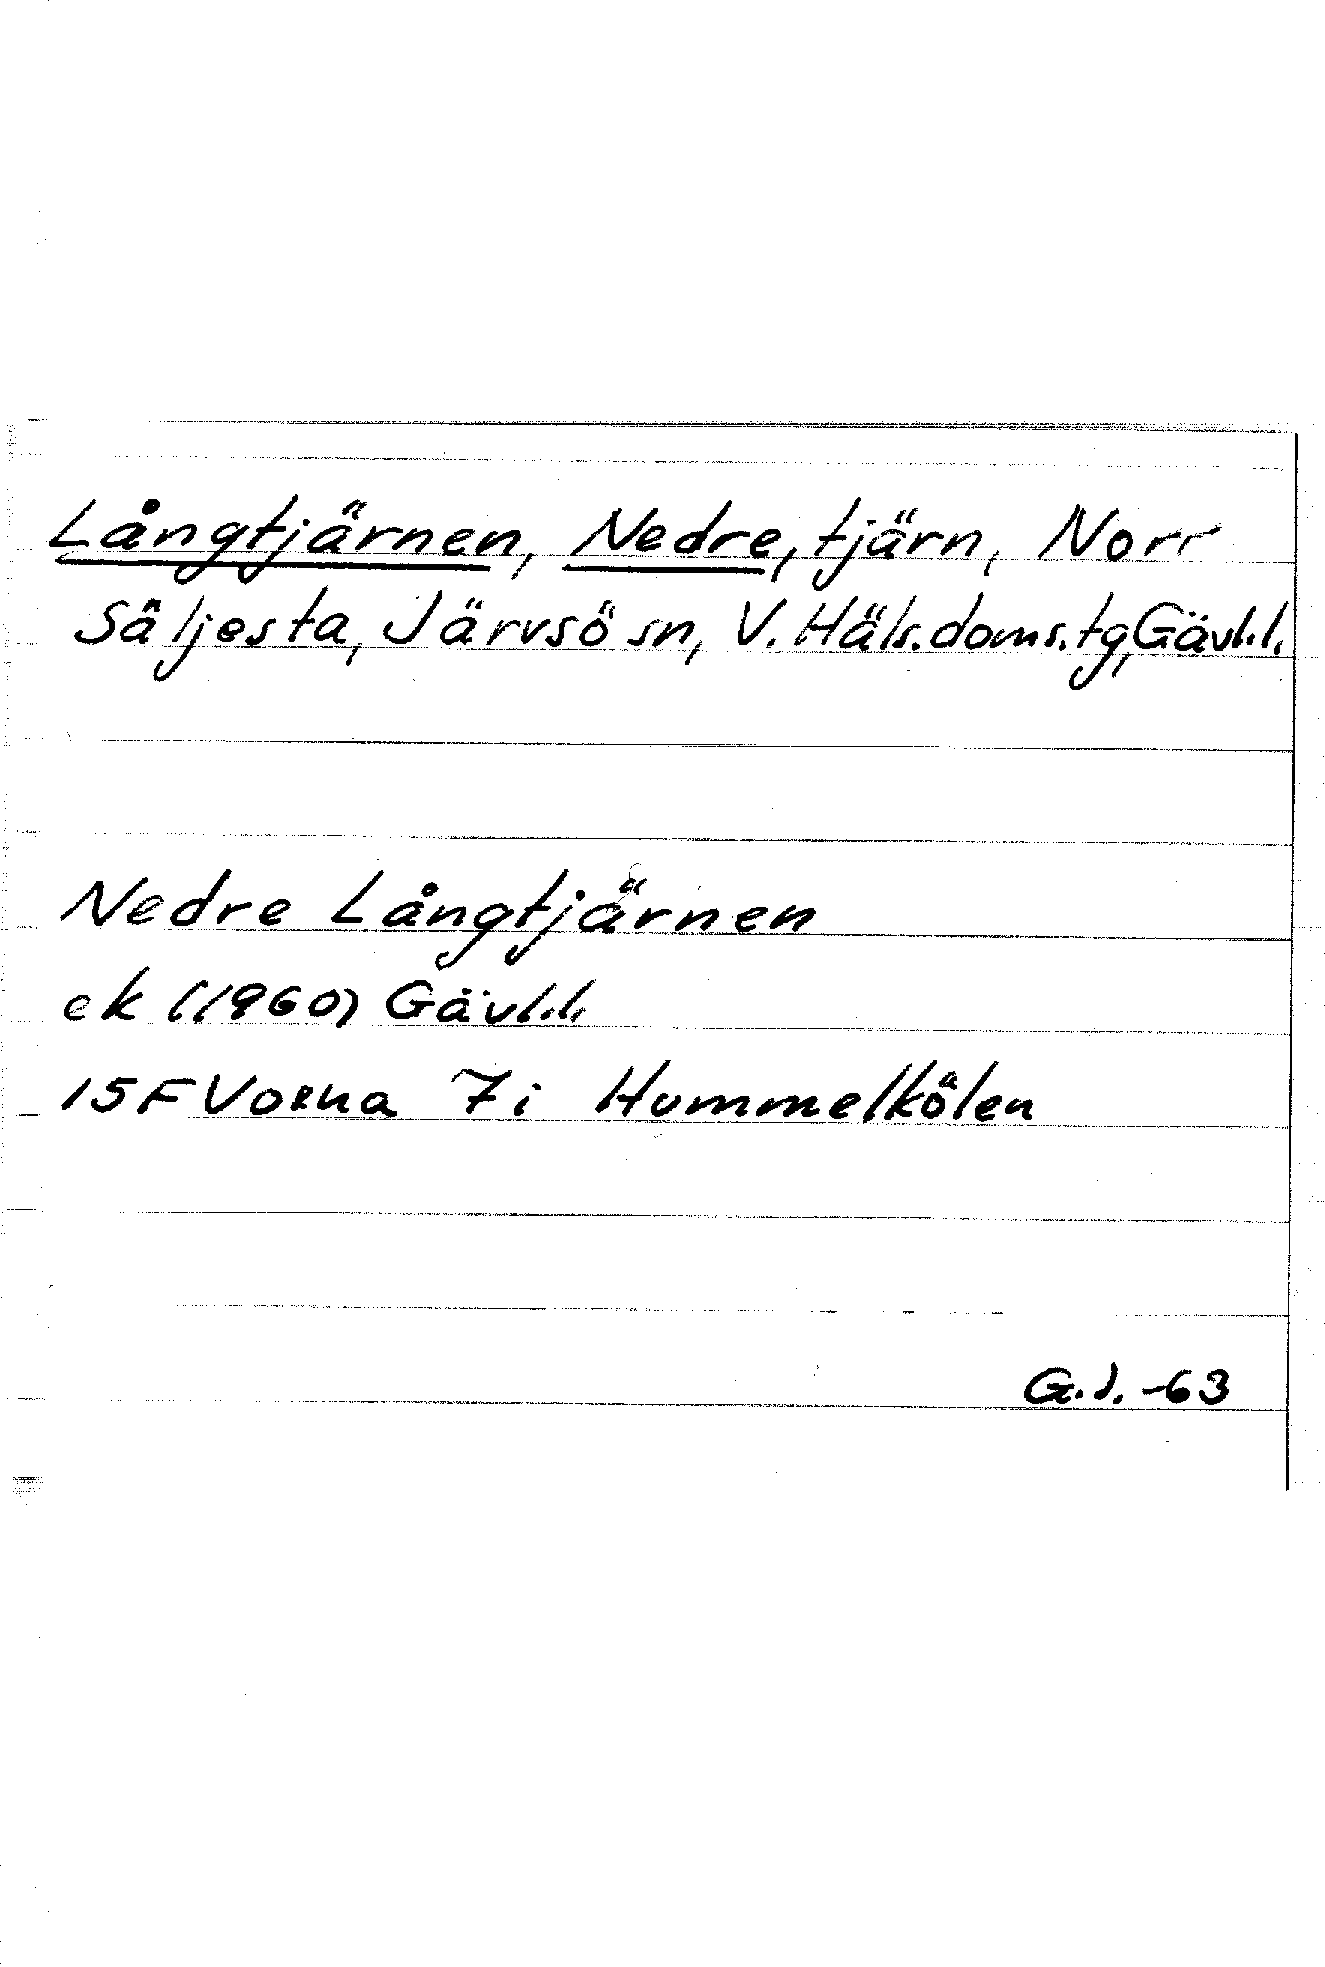 Långtjärnen, Nedre, tjärn, Norr
Säljesta, Järvsö sn, V. Häls. doms. tg, Gävl.l.
Nedre Långtjärnen
ek (1960) Gävl.l.
15F Voxna 7i Hummelkölen
G.J. -63